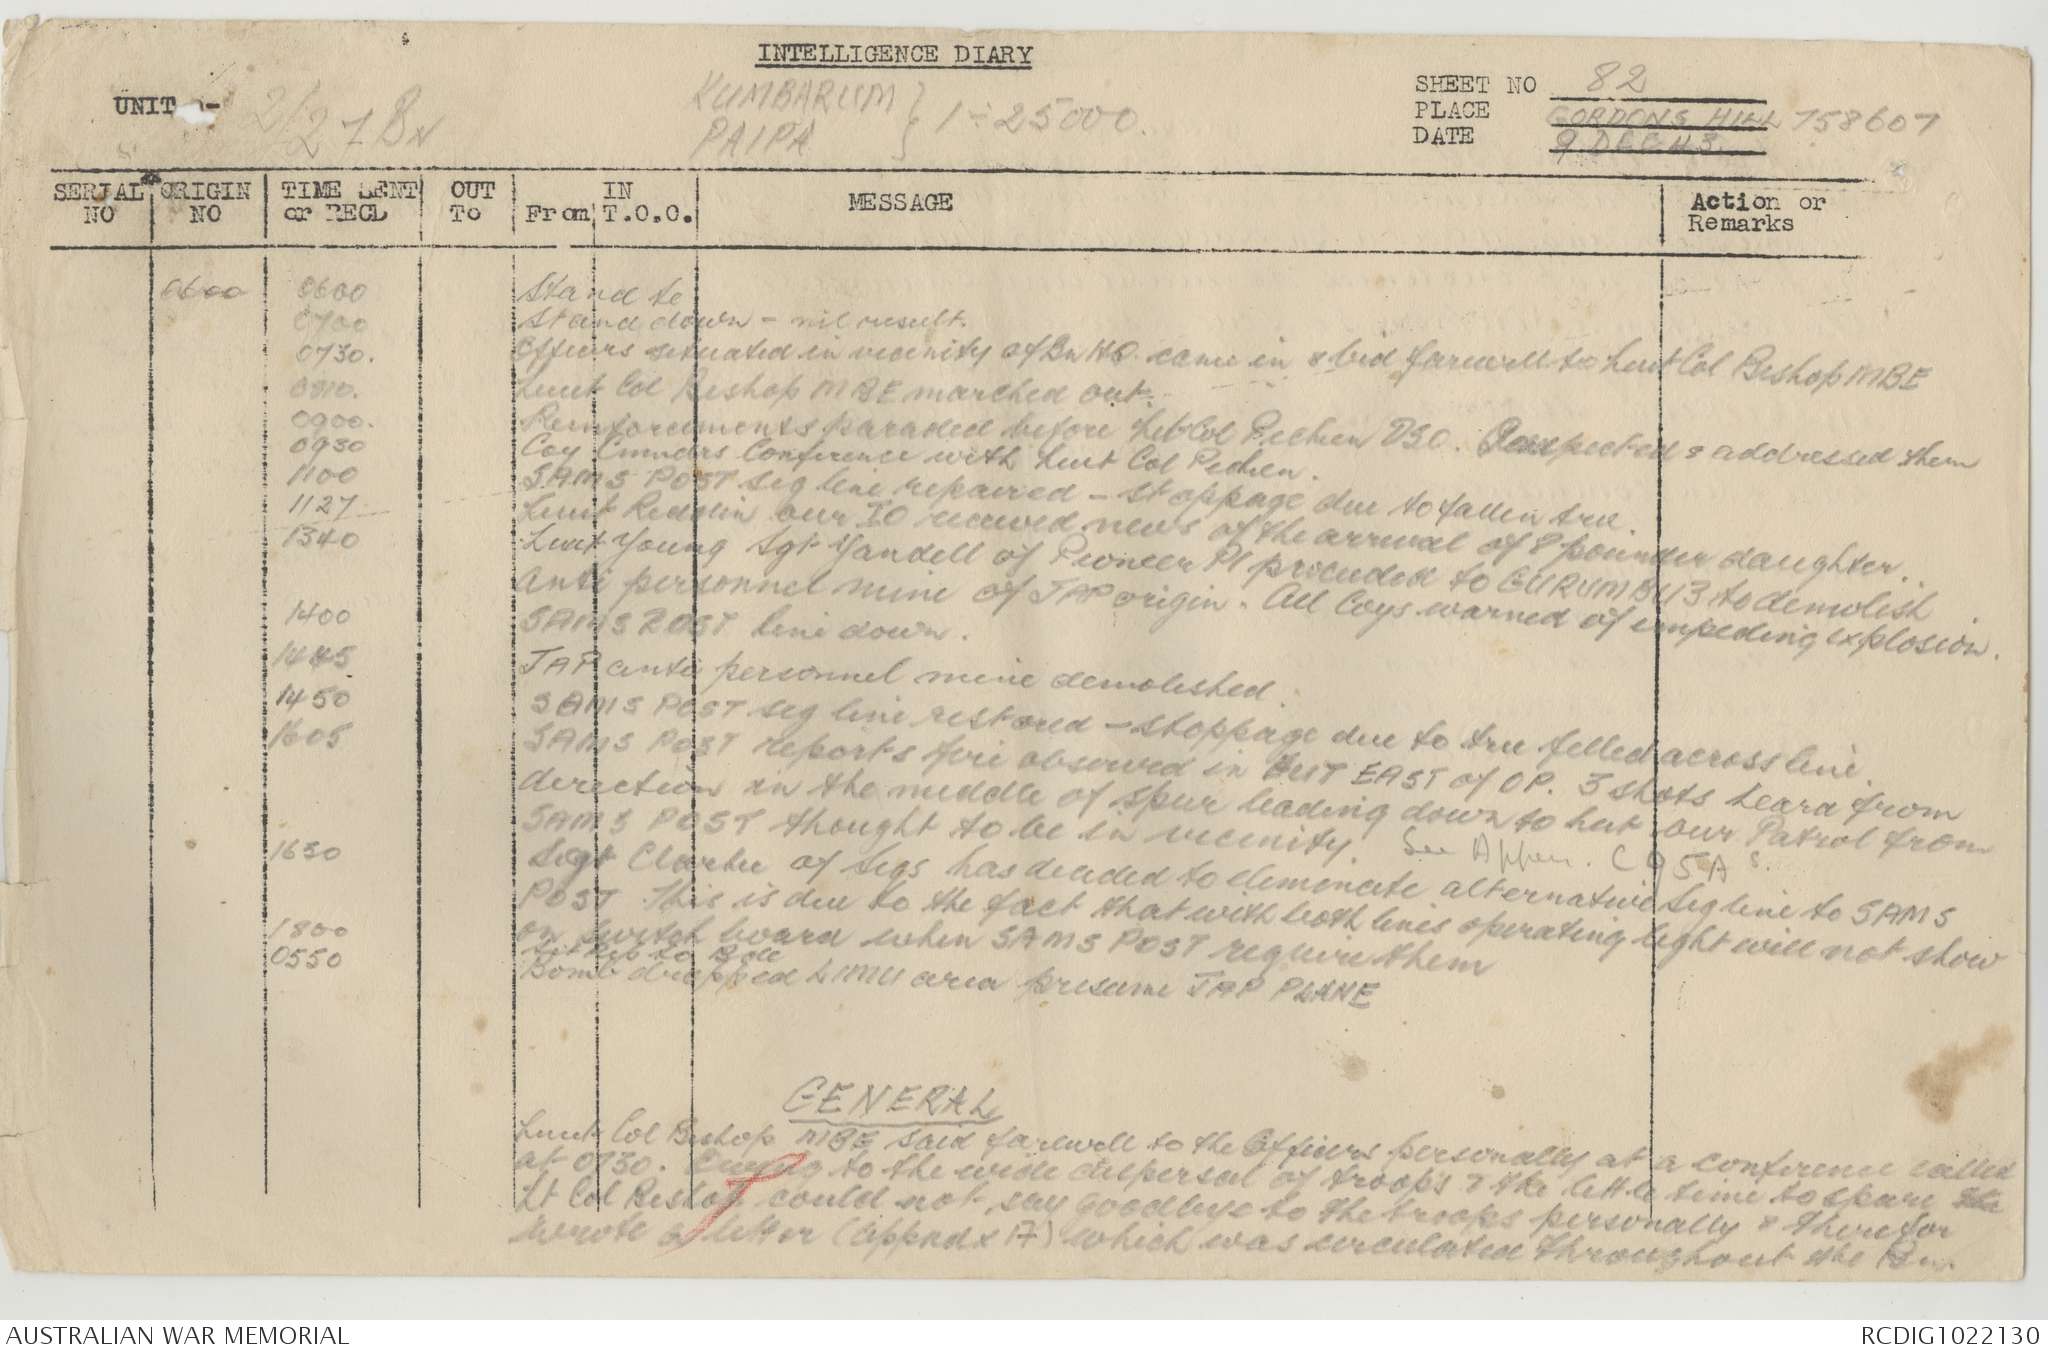 INTELLIGENCE DIARY
UNIT - 2/27 Bn
KUMBARUM
PAIPA } 1 ÷ 25000.
SHEET NO 82
PLACE GORDONS HILL 758607
DATE 9 DEC 43
SERIAL NO
ORIGIN NO
TIME SENT or RECD
OUT To
IN
From T.O.O.
MESSAGE
Action or Remarks
0600 0600 Stand to
0700 Stand down - nil result.
0730. Officers situated in vicinity of Bn HQ. came in & bid farewell to Lieut Col Bishop MBE
Lieut Col Bishop MBE marched out.
0900. Reinforcements paraded before Lt Col DSO. & addressed them
0930 Coy Cmmdrs Conference with Lieut Col
1100 SAMS POST sig line repaired - stoppage due to fallen tree.
1127 Lieut Reddin our IO received news of the arrival of 8 pounder daughter.
1340 Lieut Young Sgt Yandell of Pioneer Pl proceeded to GURUMBU 3 to demolish
Anti personnel mine of JAP origin. All Coys warned of impeding explosion.
1400 SAMS POST line down.
1445 JAP anti personnel mine demolished.
1450 SAMS POST sig line restored - stoppage due to tree felled across line.
1605 SAMS POST reports fire observed in EAST of OP. 3 shots heard from
direction in the middle of spur leading down to hut. our Patrol from
SAMS POST thought to be in vicinity. See Appen. C 95A
1630 Sigs has decided to eleminate alternative sig line to SAMS
POST. This is due to the fact that with both lines operating light will not show
on switch board when SAMS POST require them
1800 Sit Rep to Bde
0550 Bomb dropped LIMU area presume JAP PLANE
GENERAL
Lieut Col Bishop MBE said farewell to the Officers personally at a conference called
at 0730. Owing to the wide dispersal of troops & the little time to spare
Lt Col Bishop could not say goodbye to the troops personally & therefor
wrote a letter (Appndx 17) which was circulated throughout the Bn.
AUSTRALIAN WAR MEMORIAL
RCDIG1022130